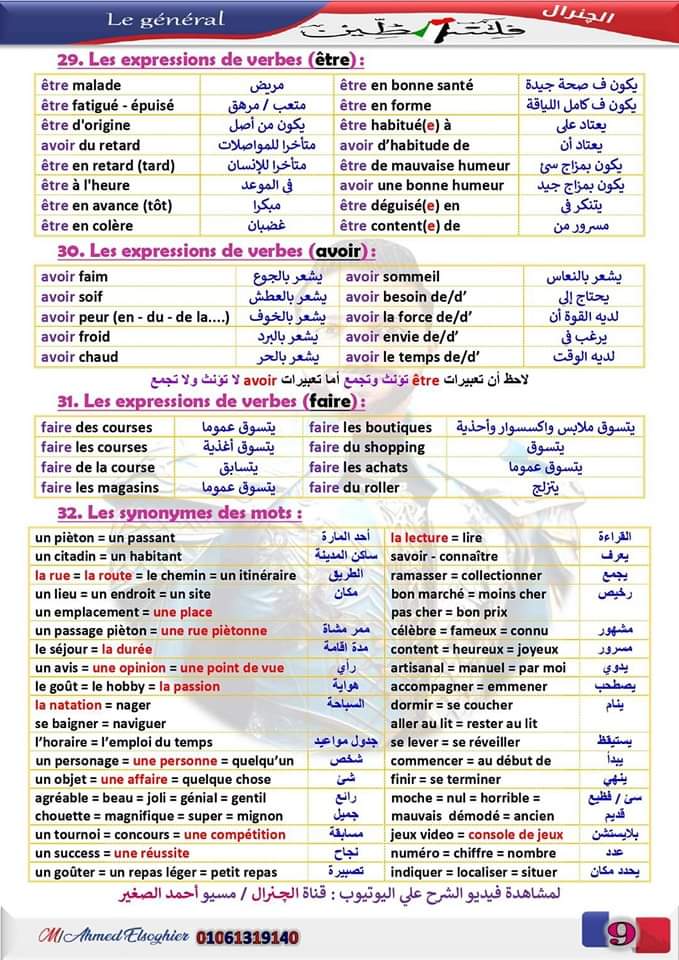 Le général
فلسطين
الجنرال
29. Les expressions de verbes (être) :
être malade مريض être en bonne santé يكون ف صحة جيدة
être fatigué - épuisé متعب / مرهق être en forme يكون ف كامل اللياقة
être d'origine يكون من أصل être habitué(e) à يعتاد على
avoir du retard متأخرا للمواصلات avoir d'habitude de يعتاد أن
être en retard (tard) متأخرا للإنسان être de mauvaise humeur يكون بمزاج سئ
être à l'heure في الموعد avoir une bonne humeur يكون بمزاج جيد
être en avance (tôt) مبكرا être déguisé(e) en يتنكر في
être en colère غضبان être content(e) de مسرور من
30. Les expressions de verbes (avoir) :
avoir faim يشعر بالجوع avoir sommeil يشعر بالنعاس
avoir soif يشعر بالعطش avoir besoin de/d' يحتاج إلى
avoir peur (en - du - de la....) يشعر بالخوف avoir la force de/d' لديه القوة أن
avoir froid يشعر بالبرد avoir envie de/d' يرغب في
avoir chaud يشعر بالحر avoir le temps de/d' لديه الوقت
لاحظ أن تعبيرات être تؤنث وتجمع أما تعبيرات avoir لا تؤنث ولا تجمع
31. Les expressions de verbes (faire) :
faire des courses يتسوق عموما faire les boutiques يتسوق ملابس واكسسوار وأحذية
faire les courses يتسوق أغذية faire du shopping يتسوق
faire de la course يتسابق faire les achats يتسوق عموما
faire les magasins يتسوق عموما faire du roller يتزلج
32. Les synonymes des mots :
un pièton = un passant أحد المارة la lecture = lire القراءة
un citadin = un habitant ساكن المدينة savoir - connaître يعرف
la rue = la route = le chemin = un itinéraire الطريق ramasser = collectionner يجمع
un lieu = un endroit = un site مكان bon marché = moins cher رخيص
un emplacement = une place pas cher = bon prix
un passage pièton = une rue piètonne ممر مشاة célèbre = fameux = connu مشهور
le séjour = la durée مدة اقامة content = heureux = joyeux مسرور
un avis = une opinion = une point de vue رأي artisanal = manuel = par moi يدوي
le goût = le hobby = la passion هواية accompagner = emmener يصطحب
la natation = nager السباحة dormir = se coucher ينام
se baigner = naviguer aller au lit = rester au lit
l'horaire = l'emploi du temps جدول مواعيد se lever = se réveiller يستيقظ
un personage = une personne = quelqu'un شخص commencer = au début de يبدأ
un objet = une affaire = quelque chose شئ finir = se terminer ينهي
agréable = beau = joli = génial = gentil رائع moche = nul = horrible = سئ / فظيع
chouette = magnifique = super = mignon جميل mauvais démodé = ancien قديم
un tournoi = concours = une compétition مسابقة jeux video = console de jeux بلايستشن
un success = une réussite نجاح numéro = chiffre = nombre عدد
un goûter = un repas léger = petit repas تصبيرة indiquer = localiser = situer يحدد مكان
لمشاهدة فيديو الشرح علي اليوتيوب : قناة الچنرال / مسيو أحمد الصغير
M/Ahmed Elsoghier 01061319140
9